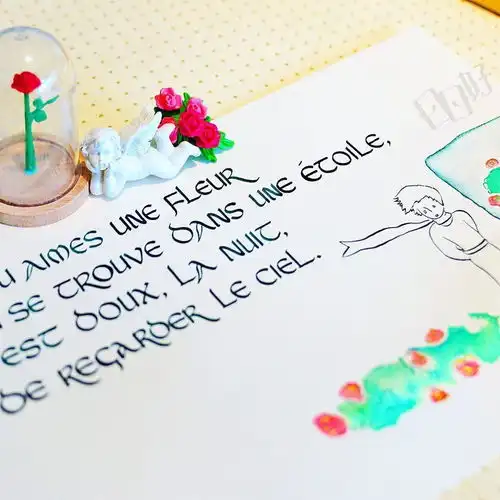 U AIMES UNE FLEUR
SE TROUVE DANS UNE ÉTOILE,
EST DOUX, LA NUIT,
DE REGARDER LE CIEL.